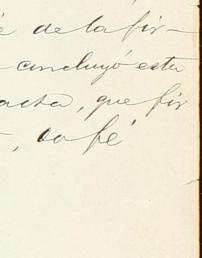 é de la fir-
concluyó esta
acta, que fir
, do fé